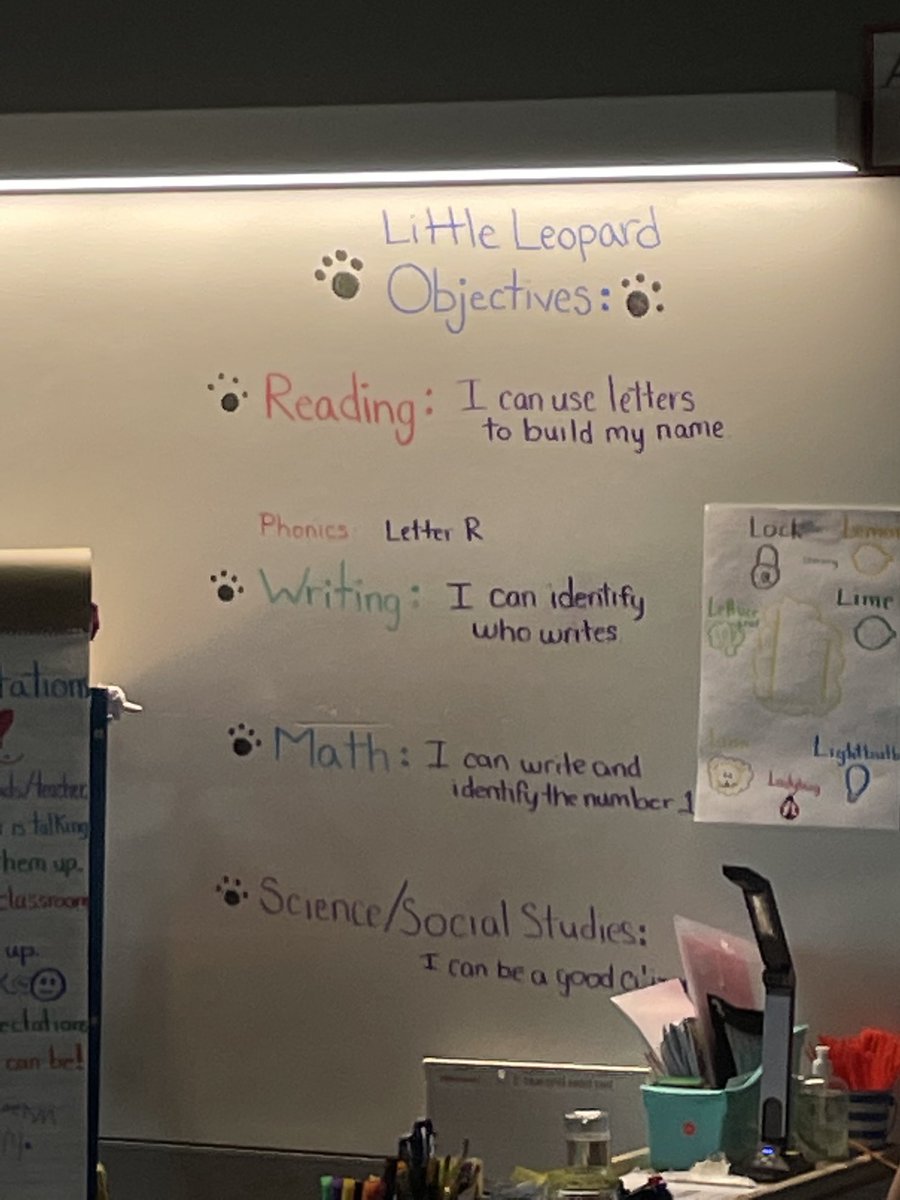 Little Leopard
Objectives:
Reading: I can use letters
to build my name
Phonics Letter R
Writing: I can identify
who writes
Math: I can write and
identify the number 1
Science/Social Studies:
I can be a good
Lock
Lemon
Lime
Lettuce
Lightbulb
Ladybug
is talking
them up.
classroom
up.
can be!